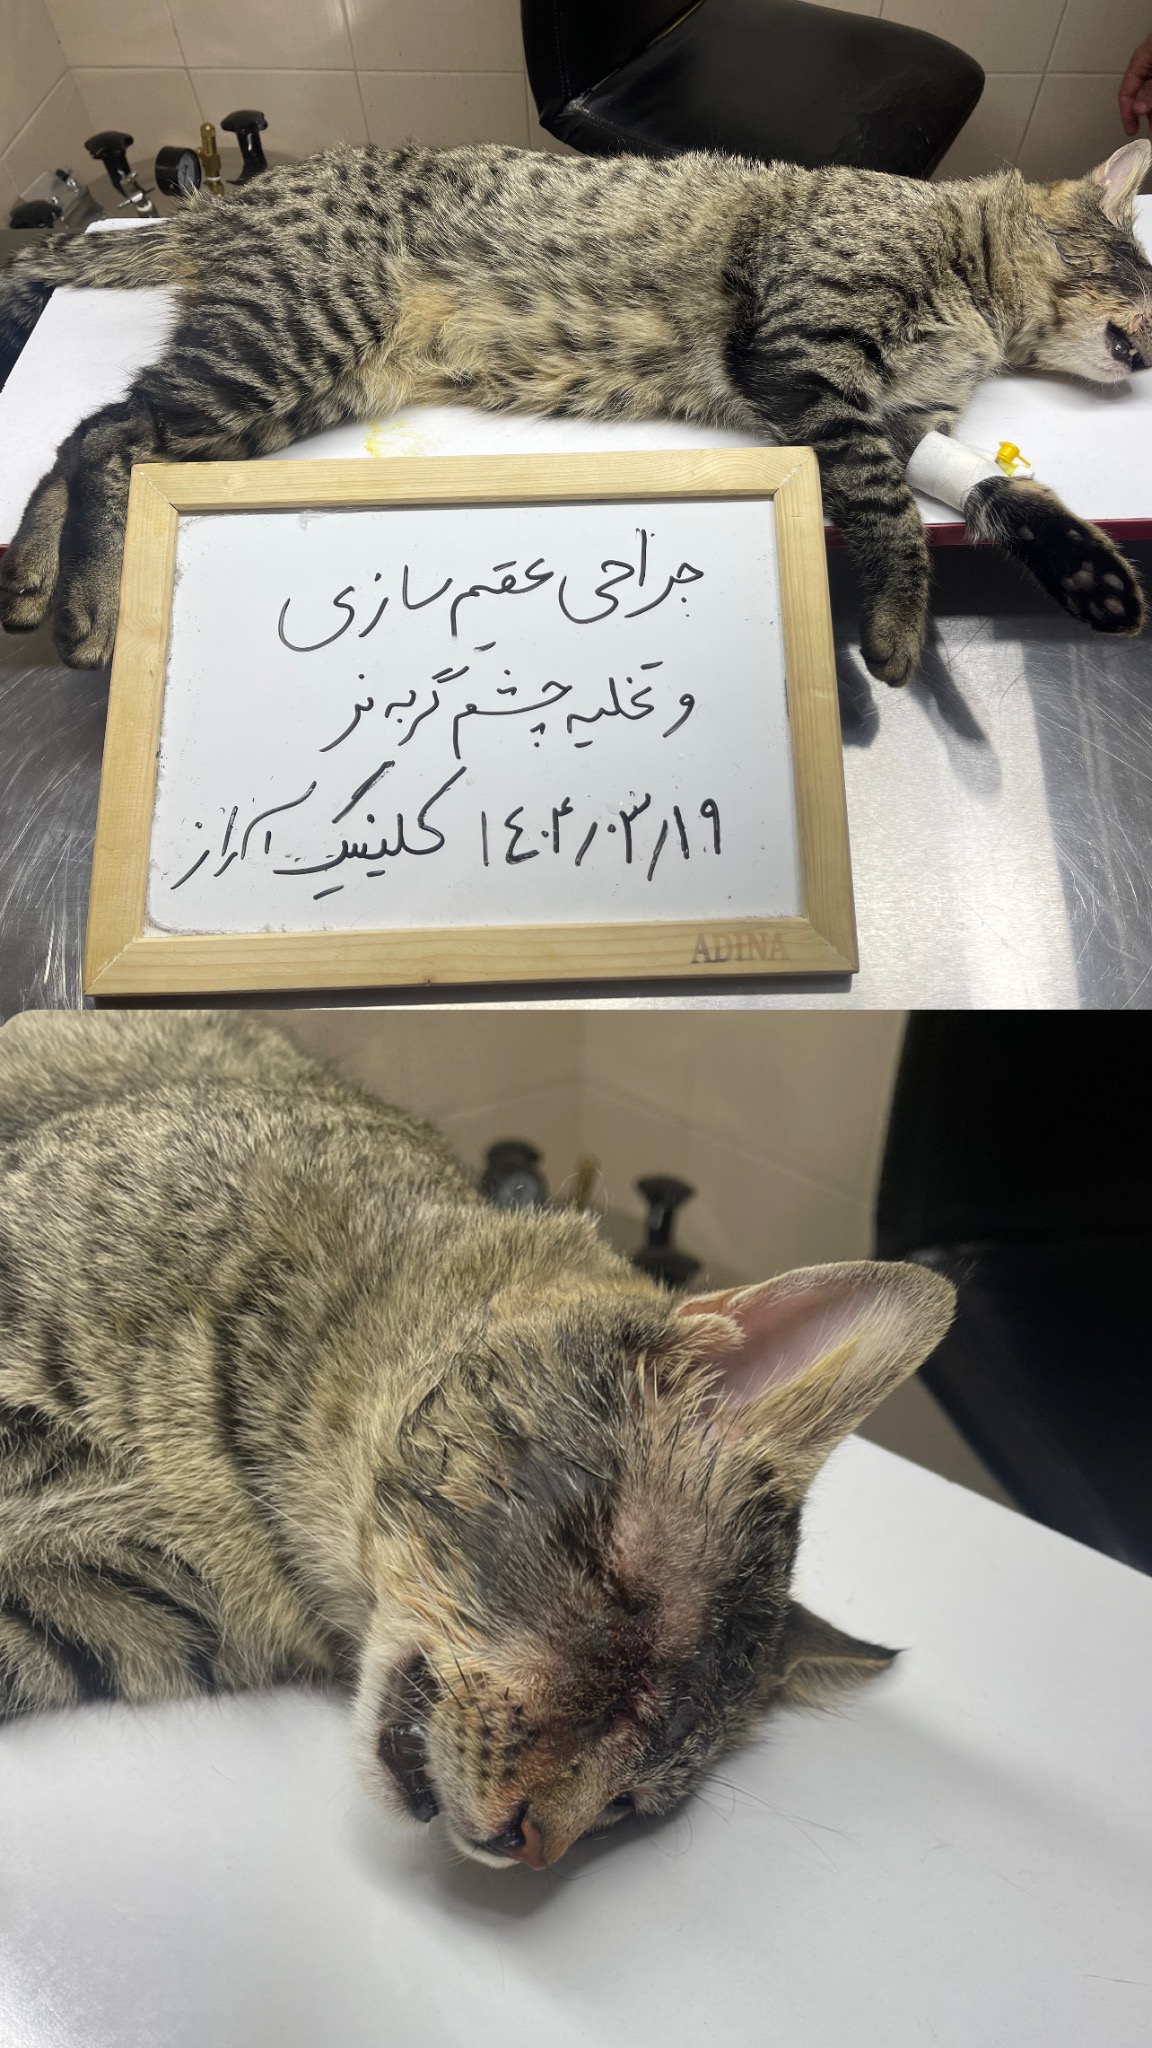 جراحی عقیم سازی
و تخلیه چشم گربه نر
۱۴۰۴/۰۳/۱۹ کلینیک آراز
ADINA